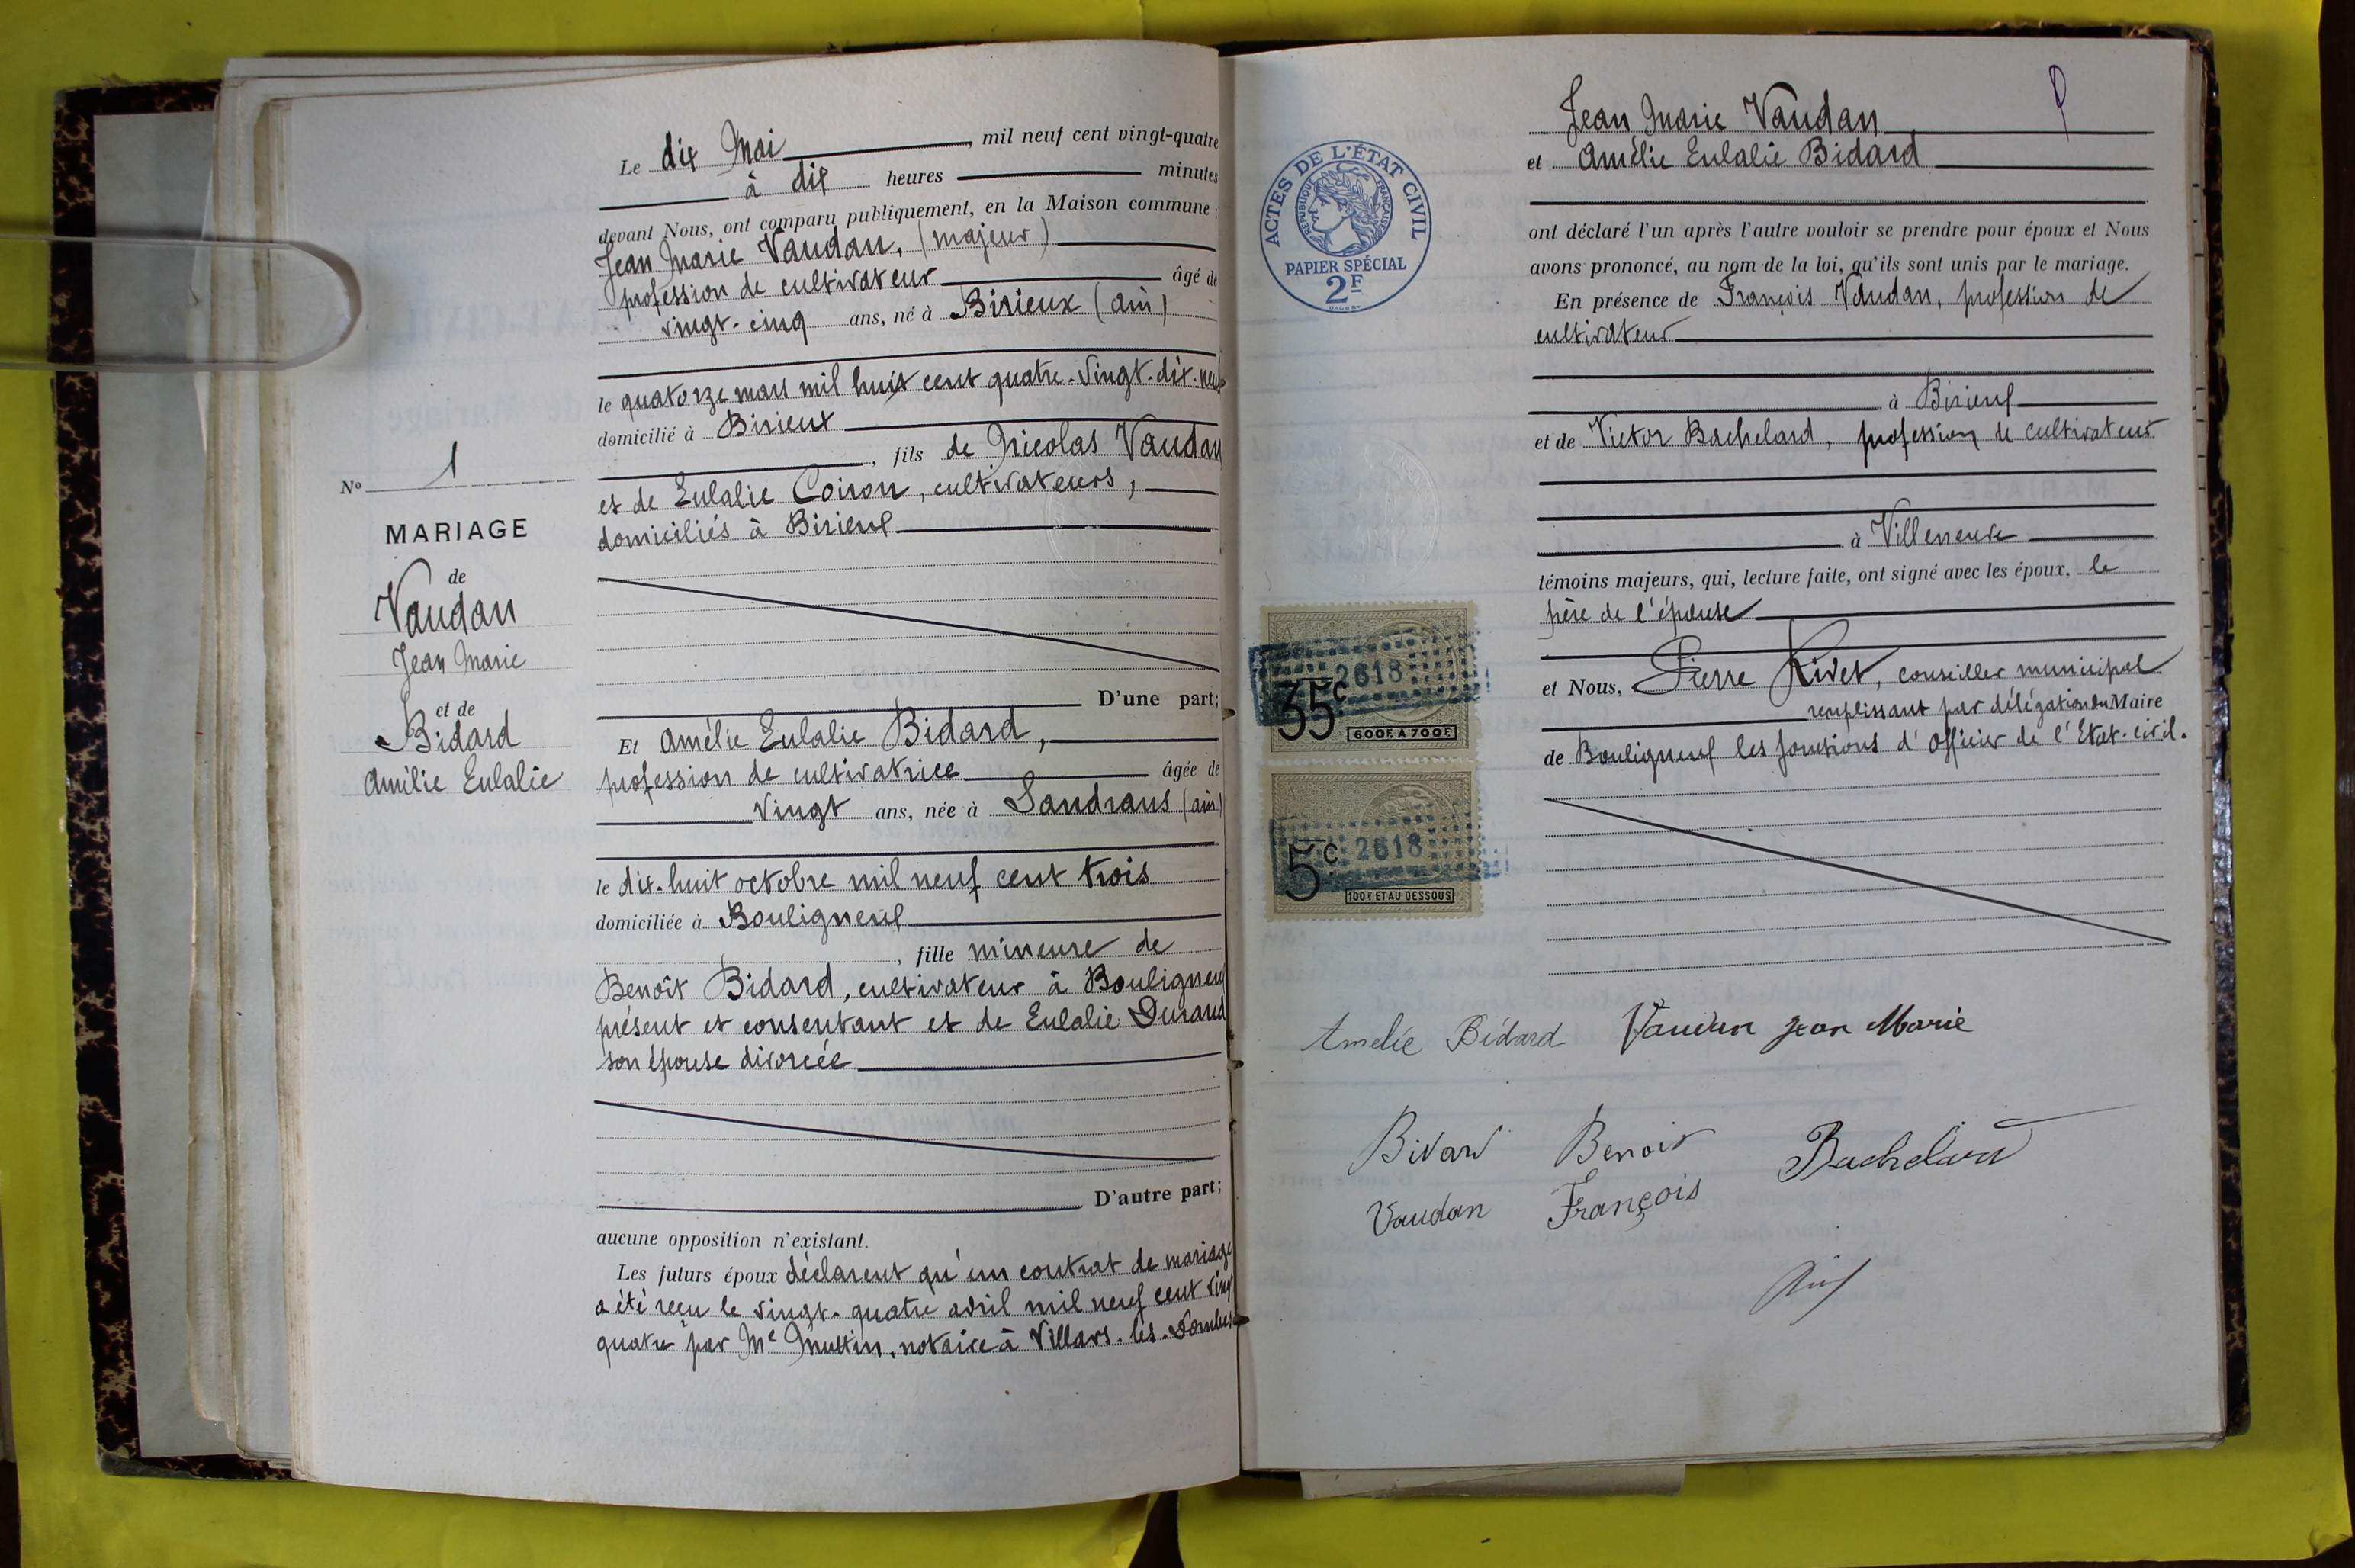 Le dix Mai, mil neuf cent vingt-quatre
à dix heures minutes
devant Nous, ont comparu publiquement, en la Maison commune :
Jean Marie Vaudan, (majeur)
profession de cultivateur âgé de
vingt-cinq ans, né à Birieux (ain)
le quatorze mars mil huit cent quatre-vingt-dix-neuf
domicilié à Birieux
, fils de Nicolas Vaudan
et de Eulalie Coiron, cultivateurs,
domiciliés à Birieux
D'une part;
Et Amélie Eulalie Bidard,
profession de cultivatrice âgée de
vingt ans, née à Sandrans (ain)
le dix-huit octobre mil neuf cent trois
domiciliée à Bouligneux
, fille mineure de
Benoît Bidard, cultivateur à Bouligneux
présent et consentant et de Eulalie Durand
son épouse divorcée
D'autre part;
aucune opposition n'existant.
Les futurs époux déclarent qu'un contrat de mariage
a été reçu le vingt-quatre avril mil neuf cent vingt
quatre par Me Muttin, notaire à Villars-les-Dombes
No 1
MARIAGE
de
Vaudan
Jean Marie
et de
Bidard
Amélie Eulalie
Jean Marie Vaudan
et Amélie Eulalie Bidard
ont déclaré l'un après l'autre vouloir se prendre pour époux et Nous
avons prononcé, au nom de la loi, qu'ils sont unis par le mariage.
En présence de François Vaudan, profession de
cultivateur
à Birieux
et de Victor Bachelard, profession de cultivateur
à Villeneuve
témoins majeurs, qui, lecture faite, ont signé avec les époux, le
père de l'épouse
et Nous, Pierre Rivet, conseiller municipal
remplissant par délégation du Maire
de Bouligneux les fonctions d'Officier de l'Etat-civil.
ACTES DE L'ÉTAT CIVIL
RÉPUBLIQUE FRANÇAISE
PAPIER SPÉCIAL
2F
2618
35c
600F. A 700F.
2618
5c
100F. ET AU DESSOUS
Amélie Bidard Vaudan Jean Marie
Bidard Benoit Bachelard
Vaudan François